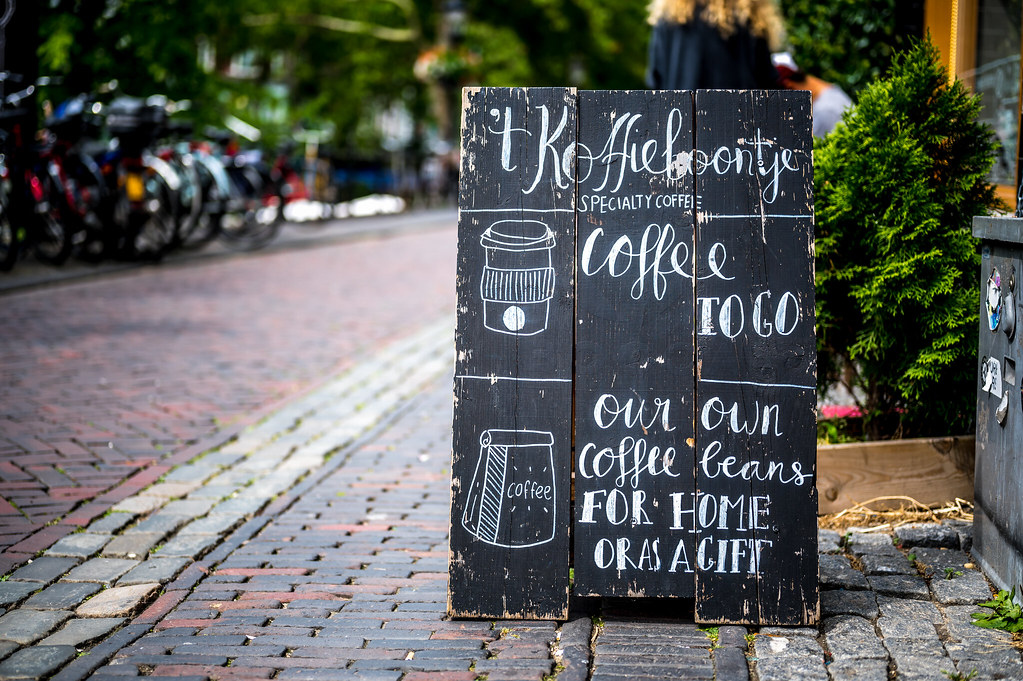 't Koffieboontje
SPECIALTY COFFEE
coffee
TO GO
our own
coffee beans
FOR HOME
OR AS A GIFT
coffee